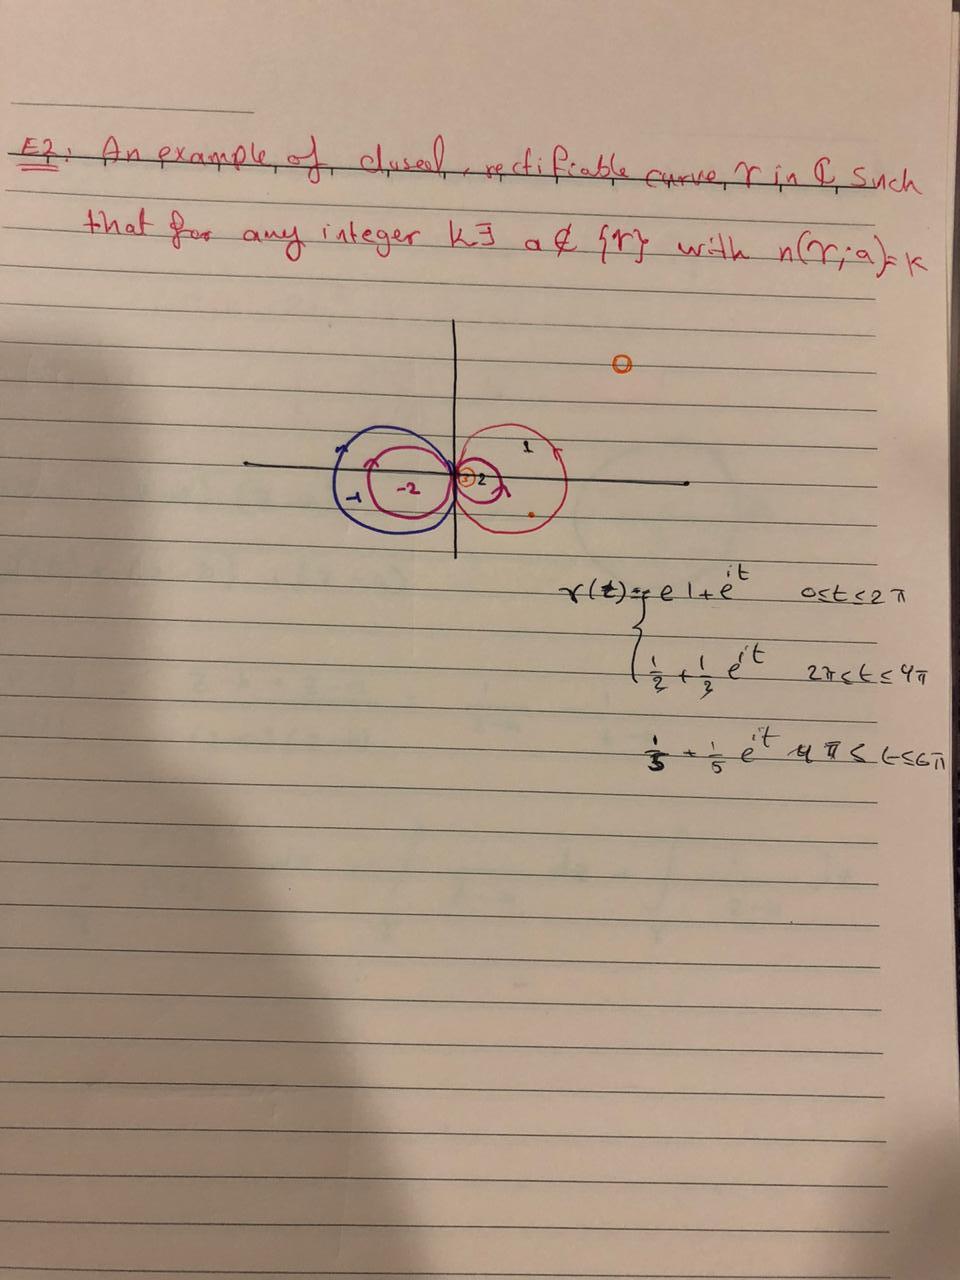 E2: An example, of, closed, rectifiable curve, γ in ℂ, such
that for any integer k ∃ a ∉ {γ} with n(γ; a) = k
1
-1
-2
2
γ(t) = { 1 + e^{it} 0 ≤ t ≤ 2π
1/2 + 1/2 e^{it} 2π ≤ t ≤ 4π
1/5 + 1/5 e^{it} 4π ≤ t ≤ 6π